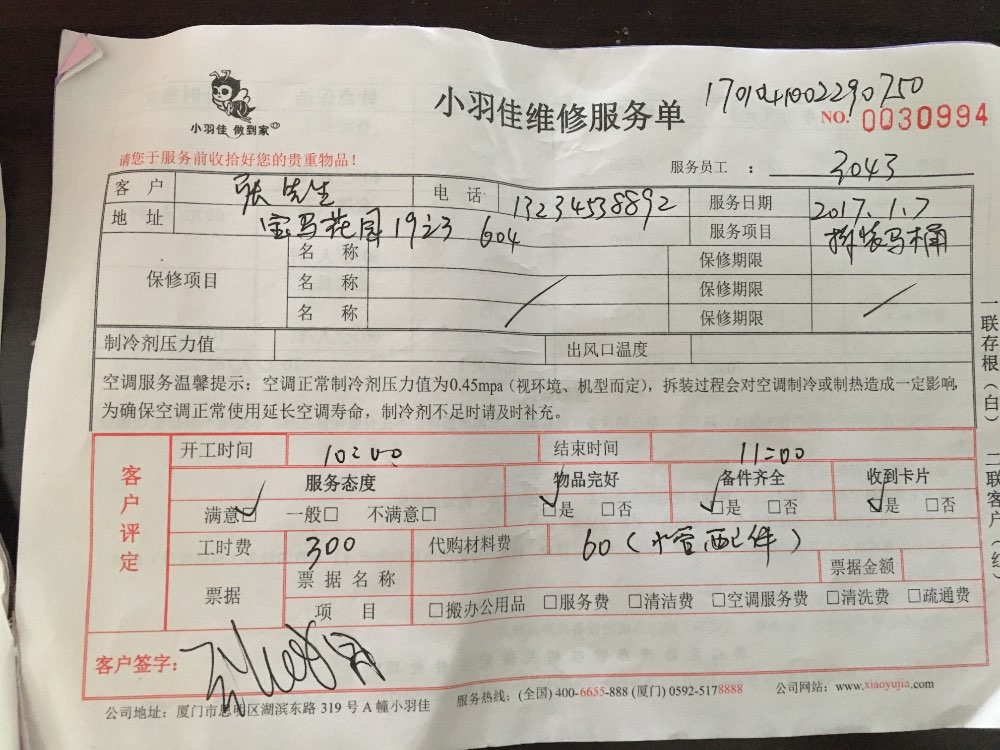 小羽佳 做到家
小羽佳维修服务单
NO. 0030994
请您于服务前收拾好您的贵重物品!
服务员工 : 3043
客 户 张先生 电 话 13234538892 服务日期 2017.1.7
地 址 宝马花园1923 604 服务项目 拆装马桶
保修项目
名 称 保修期限
名 称 保修期限
名 称 保修期限
制冷剂压力值 出风口温度
空调服务温馨提示:空调正常制冷剂压力值为0.45mpa(视环境、机型而定),拆装过程会对空调制冷或制热造成一定影响,
为确保空调正常使用延长空调寿命,制冷剂不足时请及时补充。
客户评定
开工时间 10:00 结束时间 11:00
服务态度 物品完好 备件齐全 收到卡片
满意□ 一般□ 不满意□ □是 □否 □是 □否 □是 □否
工时费 300 代购材料费 60(水管配件)
票据 票据名称 票据金额
项 目 □搬办公用品 □服务费 □清洁费 □空调服务费 □清洗费 □疏通费
客户签字:
公司地址:厦门市思明区湖滨东路 319 号 A 幢小羽佳 服务热线:(全国) 400-6655-888 (厦门) 0592-5178888 公司网站:www.xiaoyujia.com
一联存根(白)
二联客户(红)